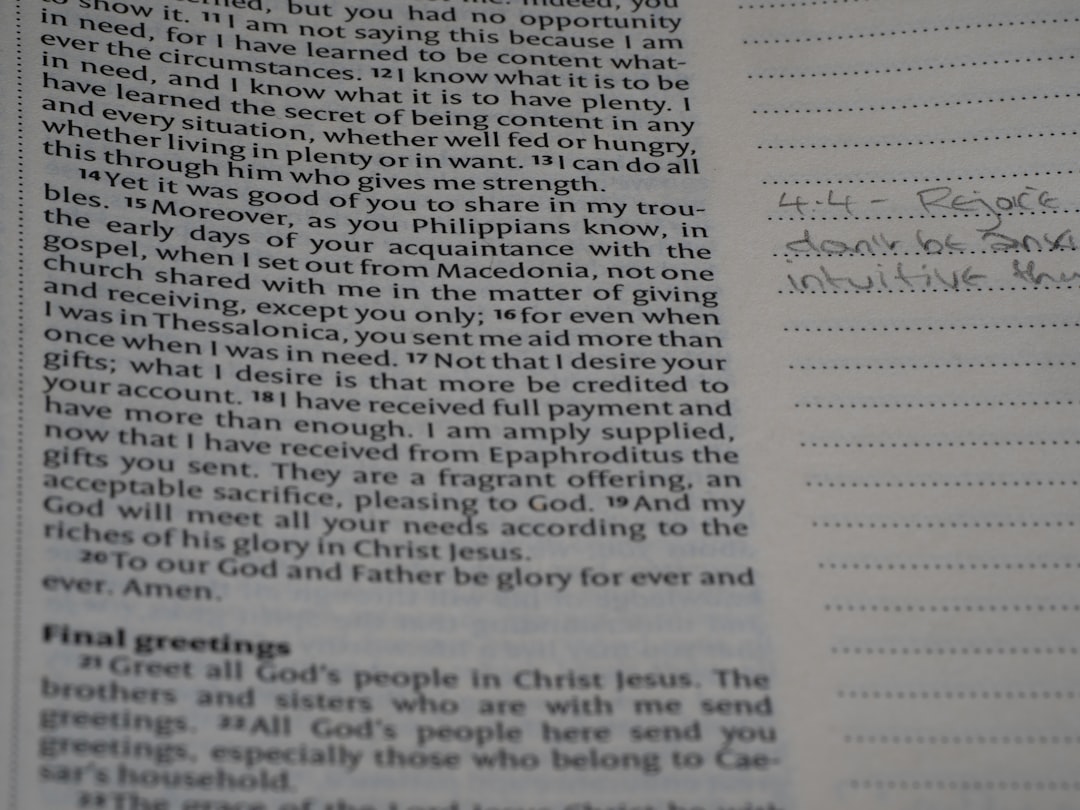 , but you had no opportunity
to show it. 11 I am not saying this because I am
in need, for I have learned to be content what-
ever the circumstances. 12 I know what it is to be
in need, and I know what it is to have plenty. I
have learned the secret of being content in any
and every situation, whether well fed or hungry,
whether living in plenty or in want. 13 I can do all
this through him who gives me strength.
14 Yet it was good of you to share in my trou-
bles. 15 Moreover, as you Philippians know, in
the early days of your acquaintance with the
gospel, when I set out from Macedonia, not one
church shared with me in the matter of giving
and receiving, except you only; 16 for even when
I was in Thessalonica, you sent me aid more than
once when I was in need. 17 Not that I desire your
gifts; what I desire is that more be credited to
your account. 18 I have received full payment and
have more than enough. I am amply supplied,
now that I have received from Epaphroditus the
gifts you sent. They are a fragrant offering, an
acceptable sacrifice, pleasing to God. 19 And my
God will meet all your needs according to the
riches of his glory in Christ Jesus.
20 To our God and Father be glory for ever and
ever. Amen.
Final greetings
21 Greet all God's people in Christ Jesus. The
brothers and sisters who are with me send
greetings. 22 All God's people here send you
greetings, especially those who belong to Cae-
sar's household.
23 The grace of the Lord Jesus Christ be with
4.4 - Rejoice
don't be
intuitive